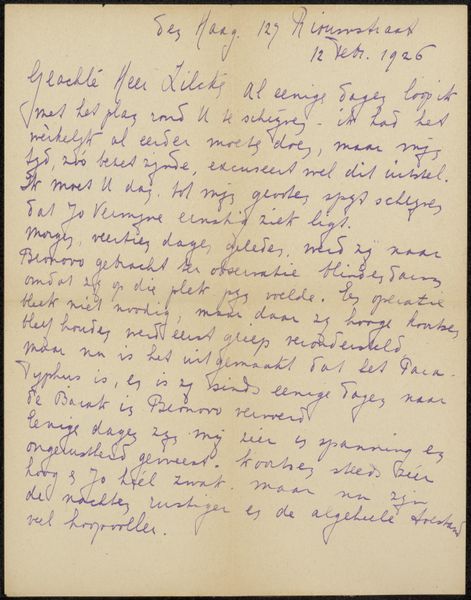 Den Haag. 127 Riouwstraat
12 Febr. 1926
Geachte Heer Zilcken, Al eenige dagen loop ik
met het plan rond U te schrijven - ik had het
werkelijk al eerder moeten doen, maar mijn
tijd, zóó bezet zijnde, excuseert wel dit uitstel.
Ik moet U dan, tot mijn grooten spijt schrijven
dat Jo Vermijne ernstig ziek ligt.
Morgen, veertien dagen geleden, werd zij naar
Bronovo gebracht ter observatie blindendarm
omdat zij op die plek pijn voelde. Een operatie
bleek niet noodig, maar daar zij hooge koortsen
bleef houden werd eerst griep verondersteld
maar nu is het uitgemaakt dat het Para-
Typhus is, en is zij sinds eenige dagen naar
de Barak in Bronovo vervoerd.
Eenige dagen zijn wij zéér in spanning en
ongerustheid geweest. Koortsen steeds zéér
hoog en Jo héél zwak. Maar nu zijn
de nachten rustiger en de algeheele toestand
veel hoopvoller.